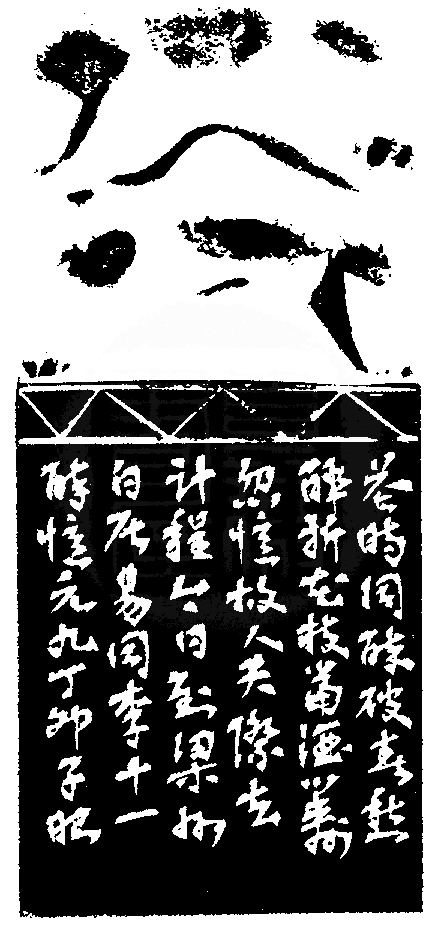 花時同醉破春愁
醉折花枝當酒籌
忽憶故人天際去
計程今日到梁州
白居易同李十一
醉憶元九丁卯子